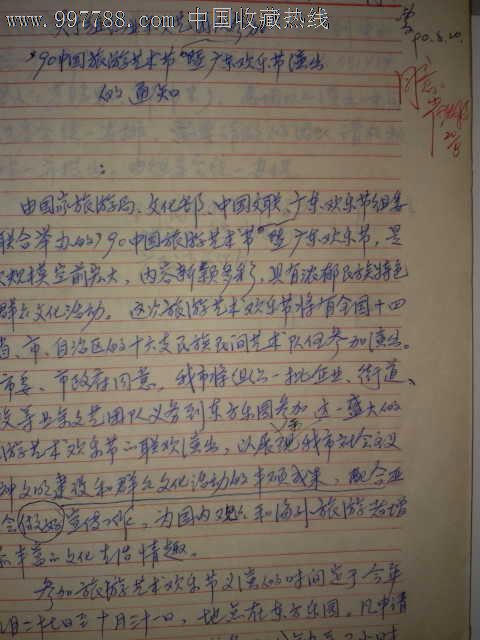 www.997788.com 中国收藏热线
90.8.20.
'90中国旅游艺术节暨广东欢乐节演出
的通知
同意
由国家旅游局、文化部、中国文联、广东欢乐节组委
联合举办的'90中国旅游艺术节暨广东欢乐节，是
规模空前盛大，内容新颖多彩，具有浓郁民族特色
群众文化活动。这次旅游艺术欢乐节将有全国十四
省、市、自治区的十六支民族民间艺术队伍参加演出。
市委、市政府同意，我市将组织一批企业、街道、
等业余文艺团队义务到东方乐园参加这一盛大的
游艺术欢乐节的联欢演出，以展现我市社会主义
神文明建设和群众文化活动的丰硕成果，配合亚
会做好宣传工作，为国内观众和海外旅游者增
丰富的文化生活情趣。
参加旅游艺术欢乐节义演的时间定于今年
月二十七日至十月三十一日，地点在东方乐园。凡申请